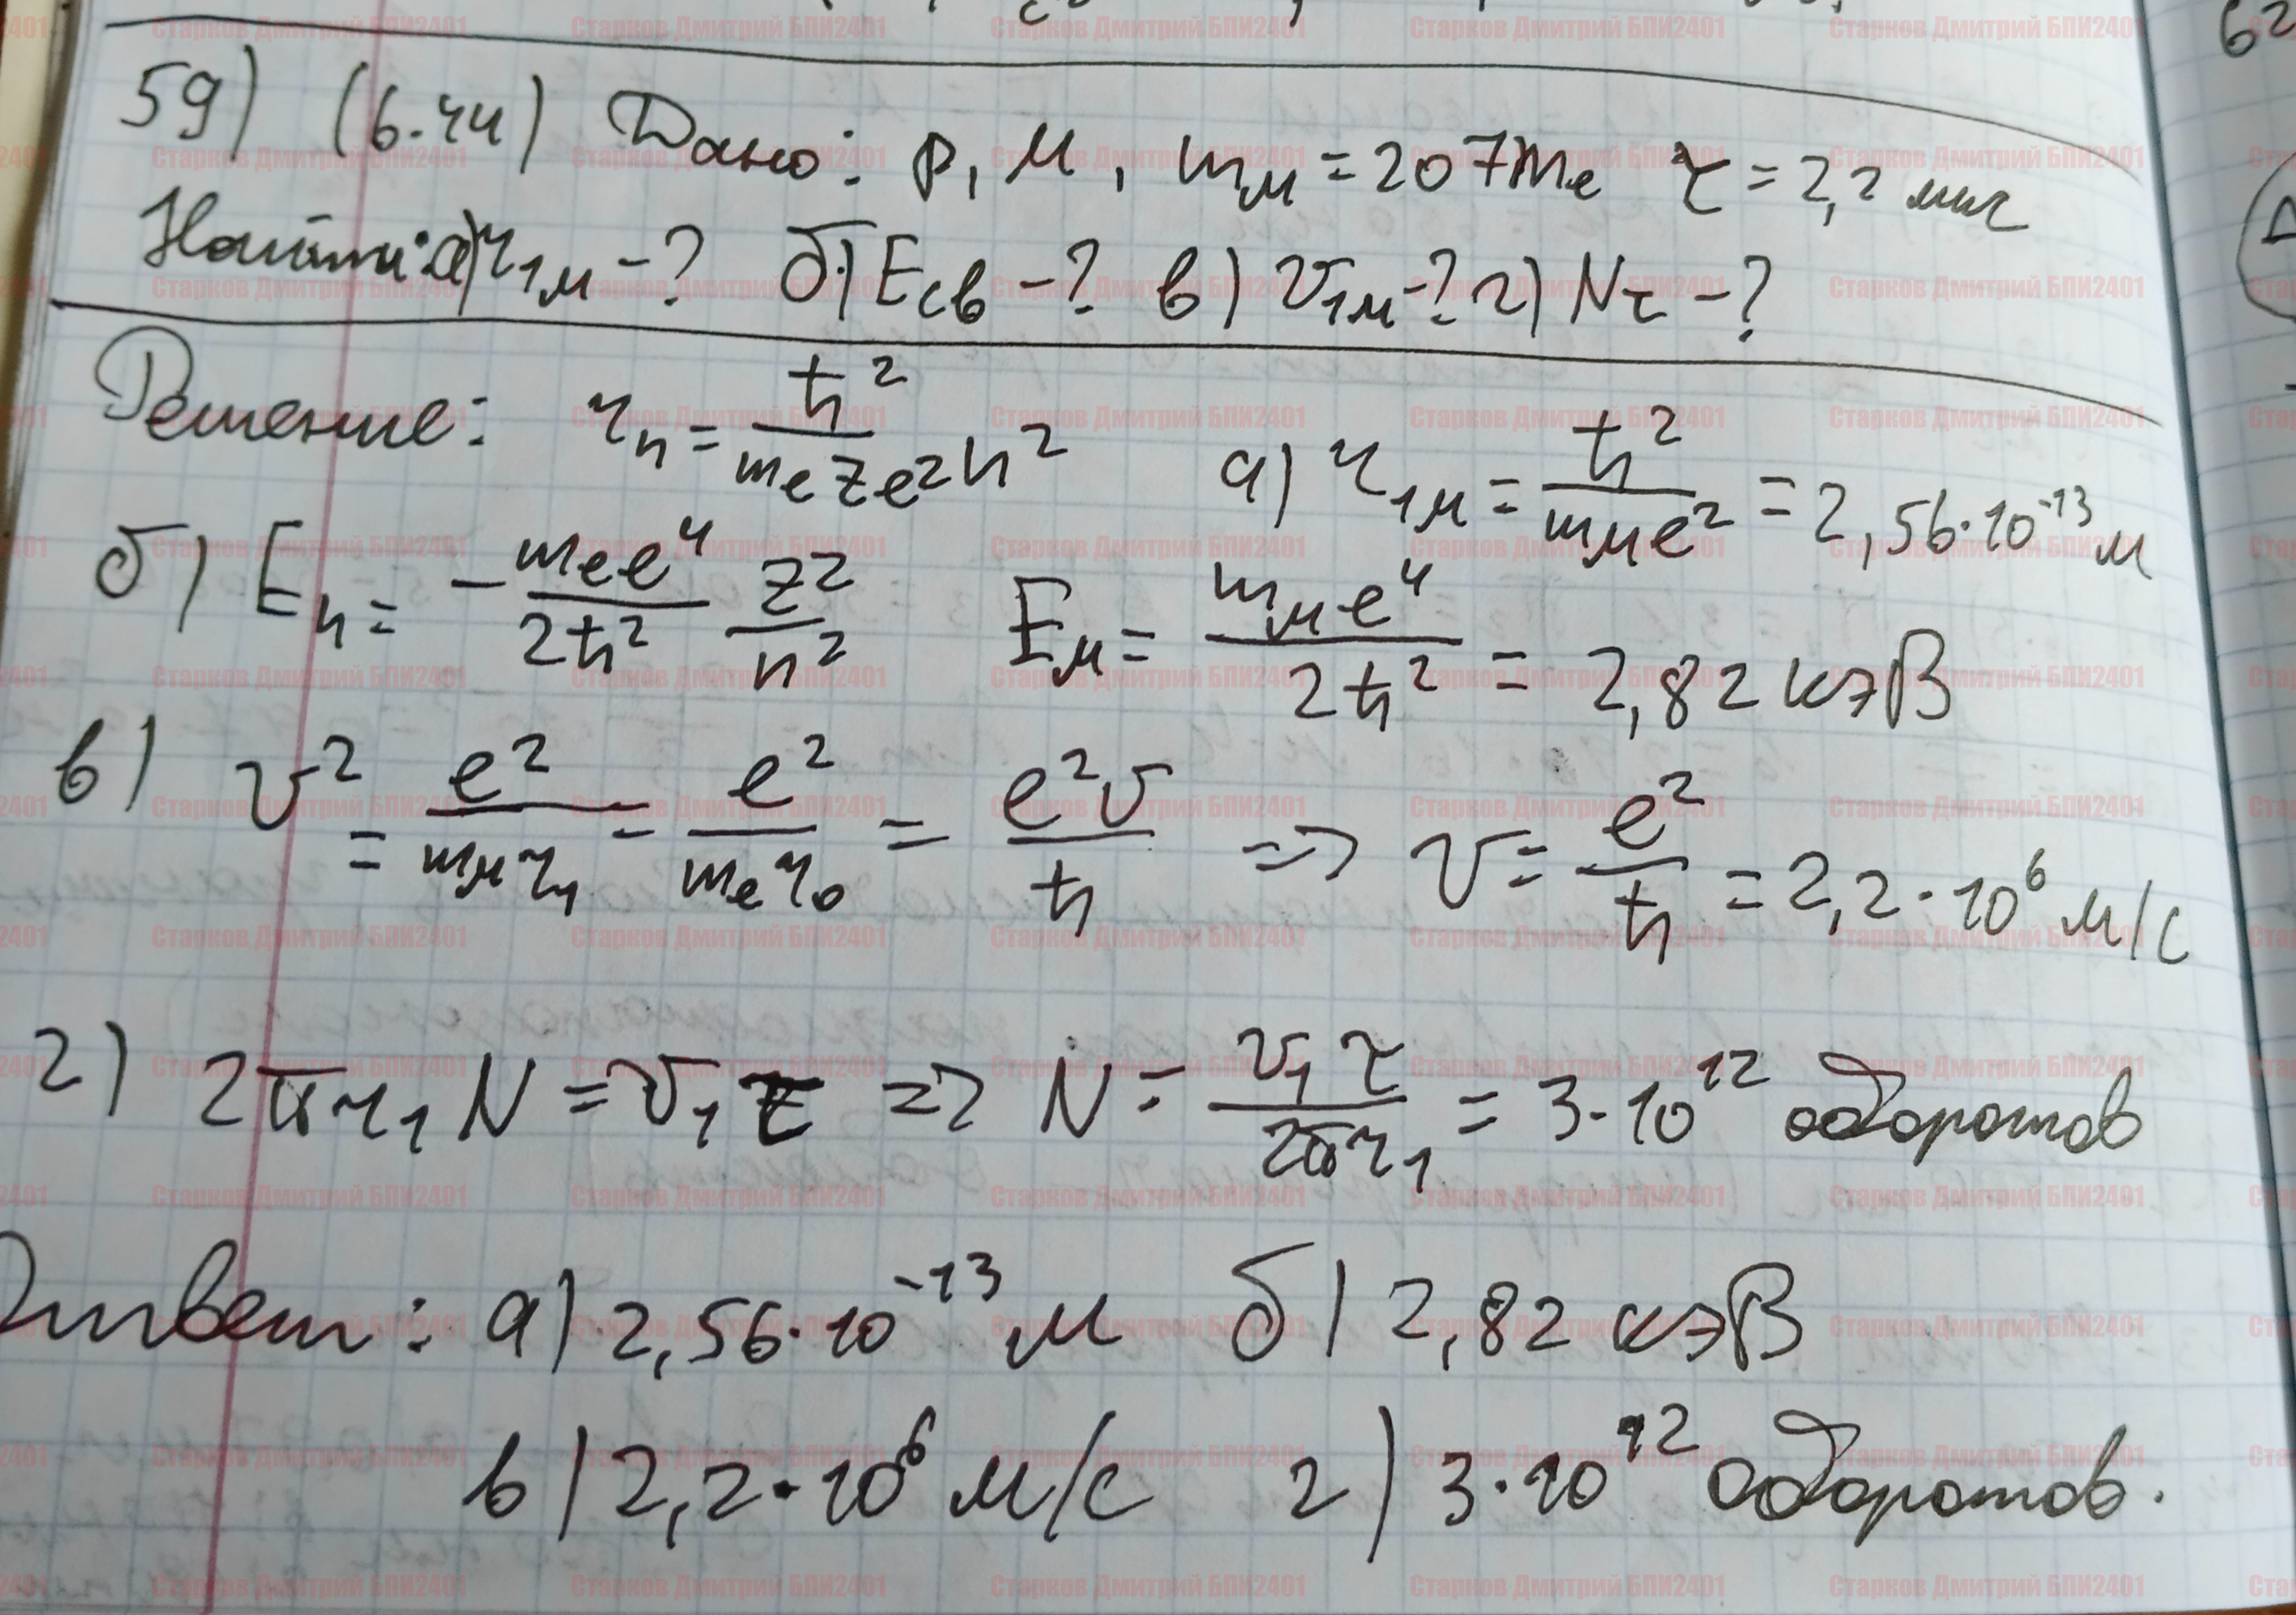 59) (6.44) Дано: p, м, mм = 207me τ = 2,2 мкс
Найти: а) r1м - ? б) Eсв - ? в) v1м - ? г) Nτ - ?
Решение: rn = ħ²/(me z e²) n² а) r1м = ħ²/(mм e²) = 2,56·10⁻¹³ м
б) En = - (me e⁴)/(2ħ²) z²/n² Eм = (mм e⁴)/(2ħ²) = 2,82 кэВ
в) v² = e²/(mм r1) = e²/(me r0) = e²v/ħ => v = e²/ħ = 2,2·10⁶ м/с
г) 2πr1 N = v1 τ => N = v1 τ/(2πr1) = 3·10¹² оборотов
Ответ: а) 2,56·10⁻¹³ м б) 2,82 кэВ
в) 2,2·10⁶ м/с г) 3·10¹² оборотов.
Старков Дмитрий БПИ2401